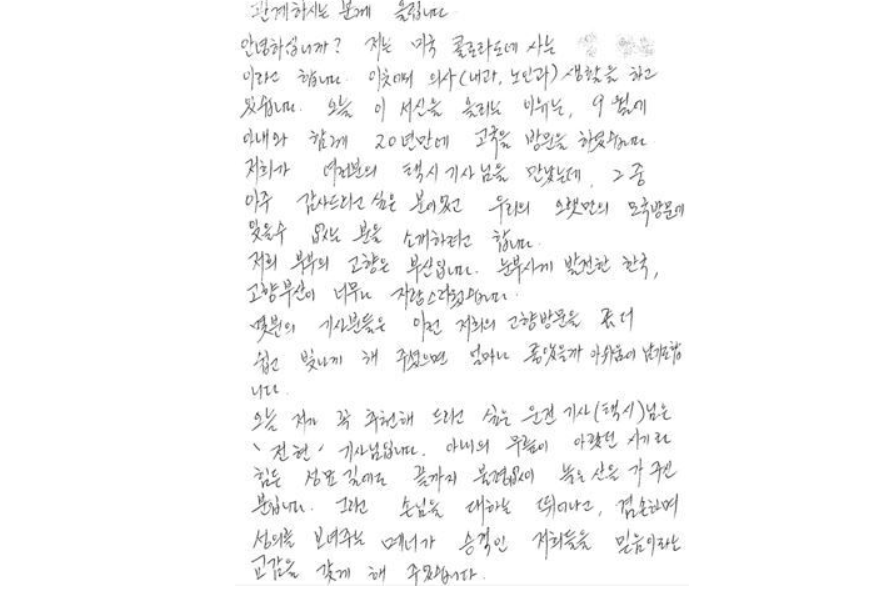 관계하시는 분께 올립니다
안녕하십니까? 저는 미국 콜로라도에 사는
이라고 합니다. 의사(내과, 노인과) 생활을 하고
있습니다. 오늘 이 서신을 올리는 이유는, 9월에
아내와 함께 20년만에 고국을 방문을 하였습니다
저희가 여러분의 택시 기사님을 만났는데, 그 중
아주 감사드리고 싶은 분이었고 우리의 오랫만의 모국방문에
잊을수 없는 분을 소개하려고 합니다.
저희 부부의 고향은 부산입니다. 눈부시게 발전한 한국,
고향부산이 너무나 자랑스러웠습니다.
몇분의 기사분들은 이런 저희의 고향방문을 좀 더
쉽고 빛나게 해 주셨으면 얼마나 좋았을까 아쉬움이 남기도합
니다.
오늘 제가 꼭 추천해 드리고 싶은 운전 기사(택시)님은
'전현' 기사님입니다. 아내의 무릎이 아팠던 시기라
힘든 성묘 길에도 끝까지 불평없이 높은 산을 가 주신
분입니다. 그리고 손님을 대하는 뛰어나고, 겸손하며
성의를 보여주는 매너가 승객인 저희들을 믿음이라는
교감을 갖게 해 주었습니다.